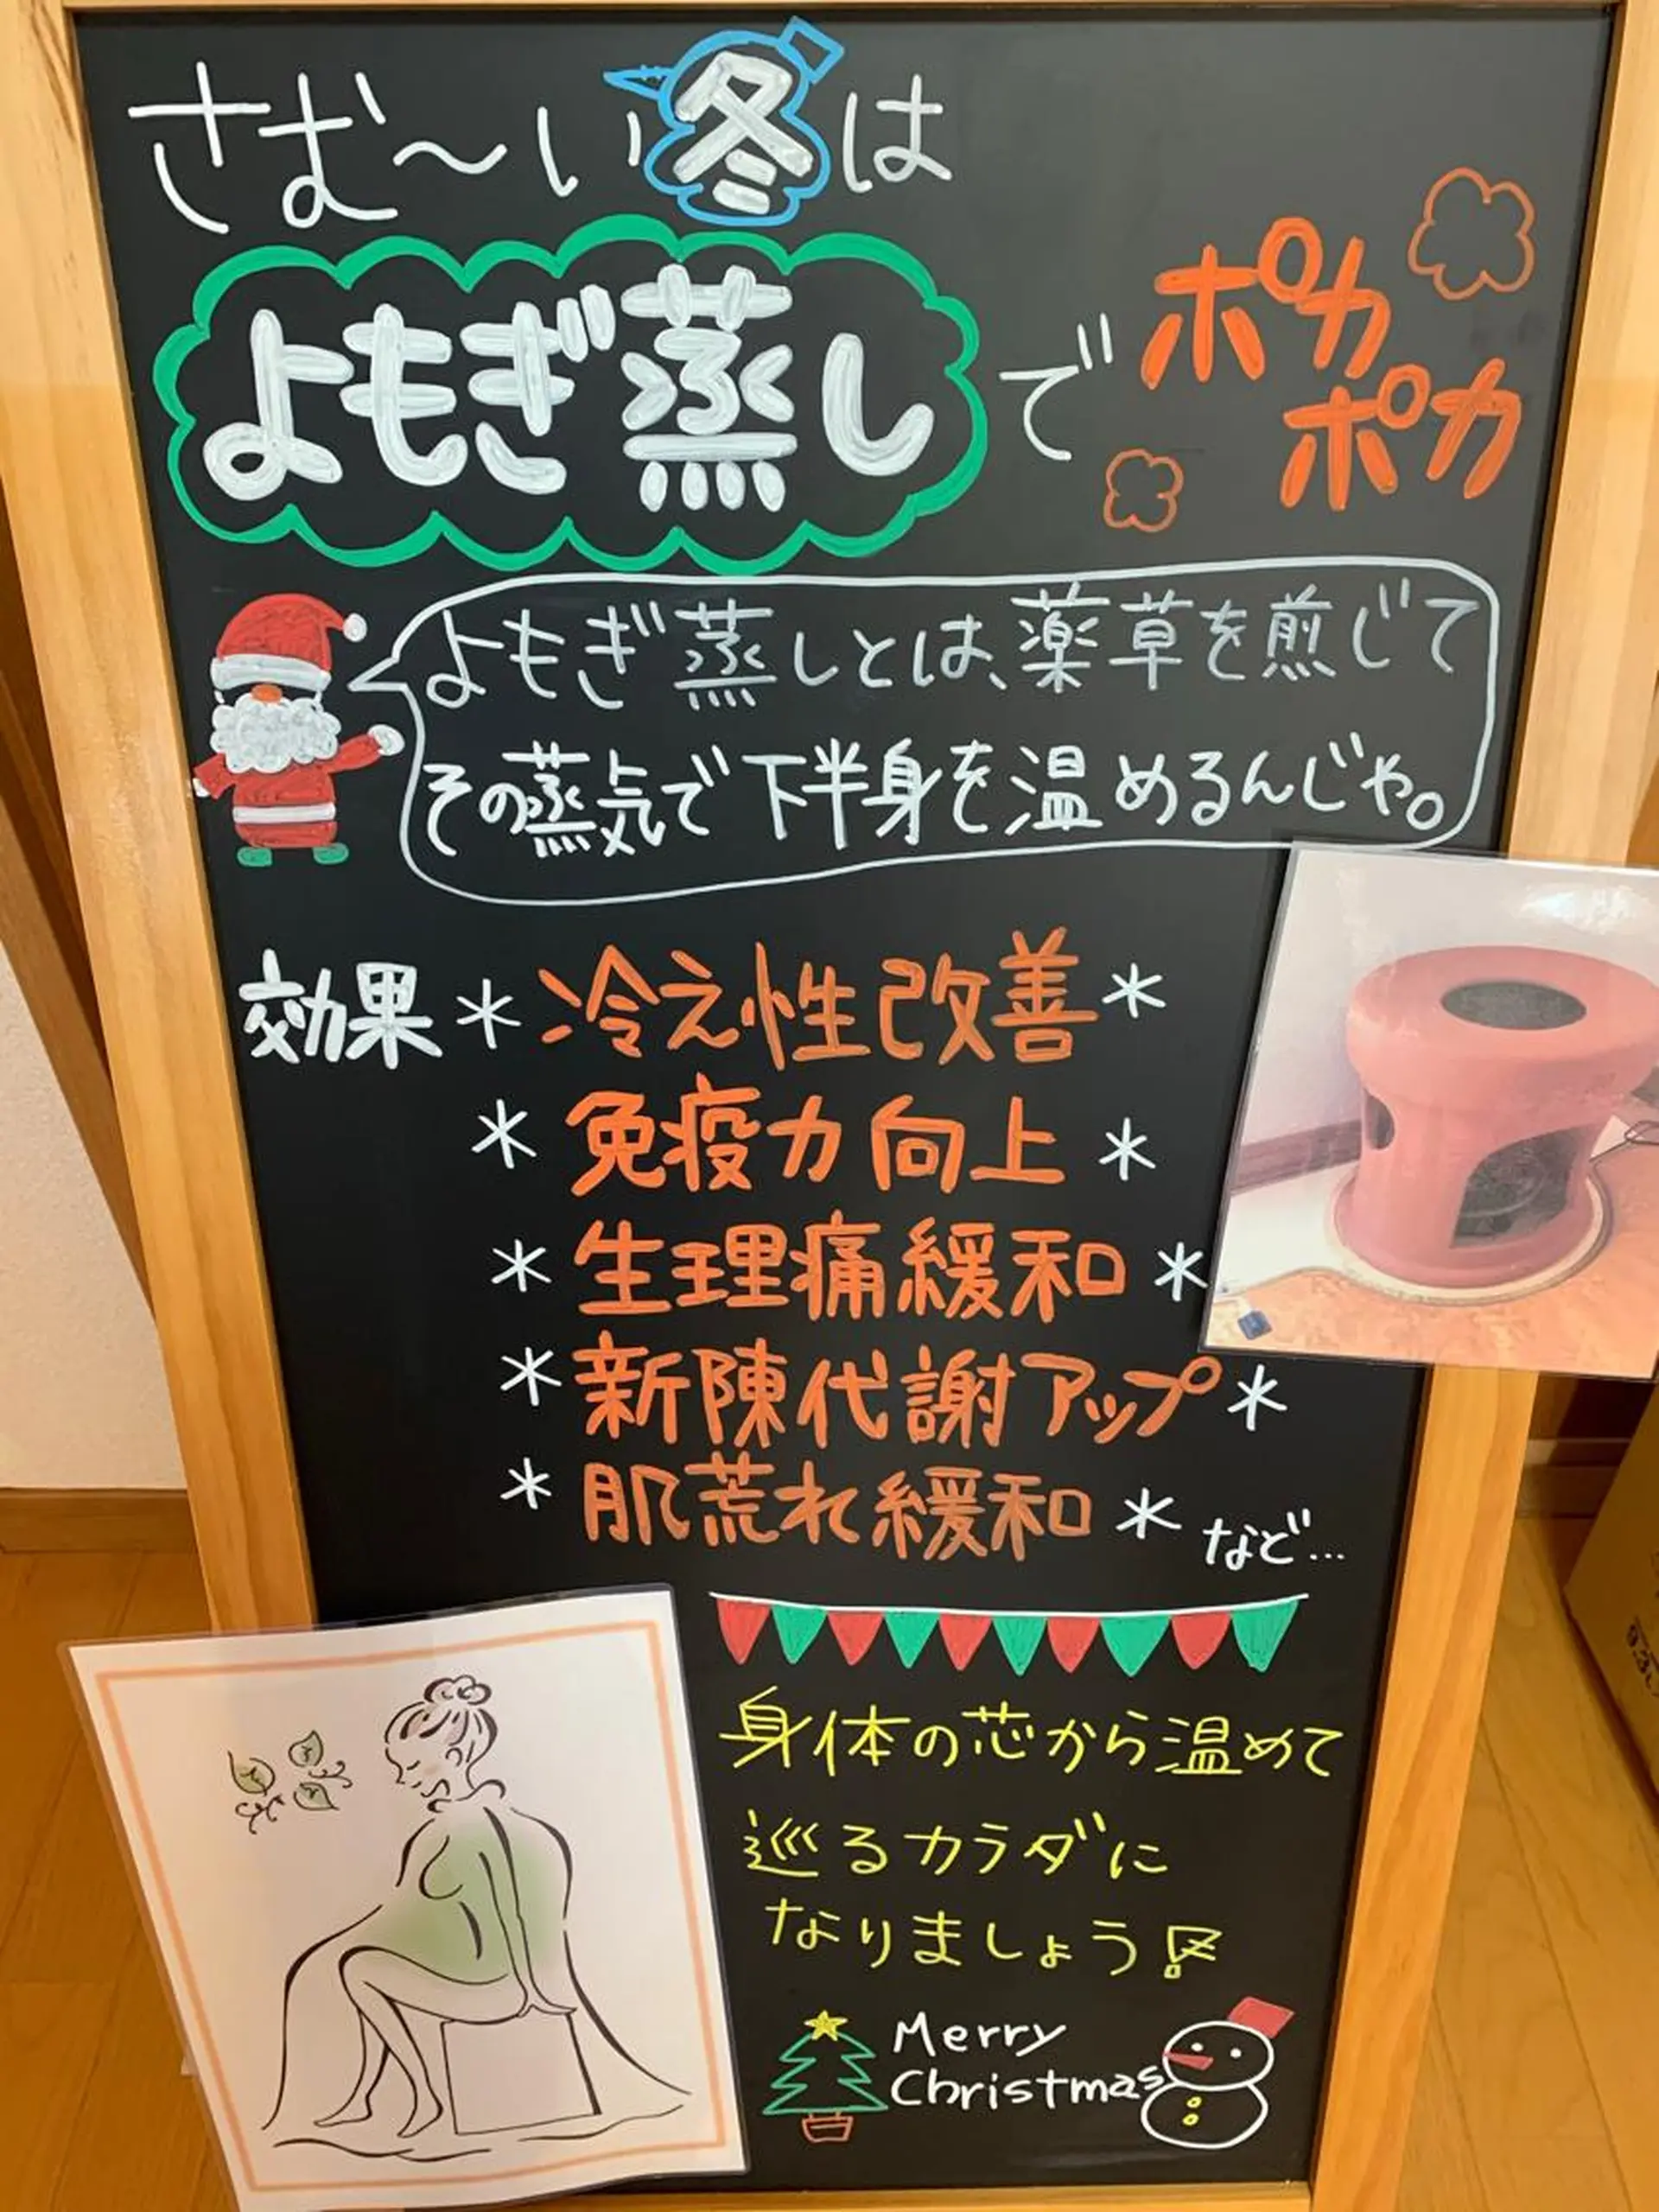 さむ～い冬は
よもぎ蒸しで
ポカ
ポカ
よもぎ蒸しとは、薬草を煎じて
その蒸気で下半身を温めるんじゃ。
効果 * 冷え性改善 *
* 免疫力向上 *
* 生理痛緩和 *
* 新陳代謝アップ *
* 肌荒れ緩和 * など…
身体の芯から温めて
巡るカラダに
なりましょう!!
Merry
Christmas